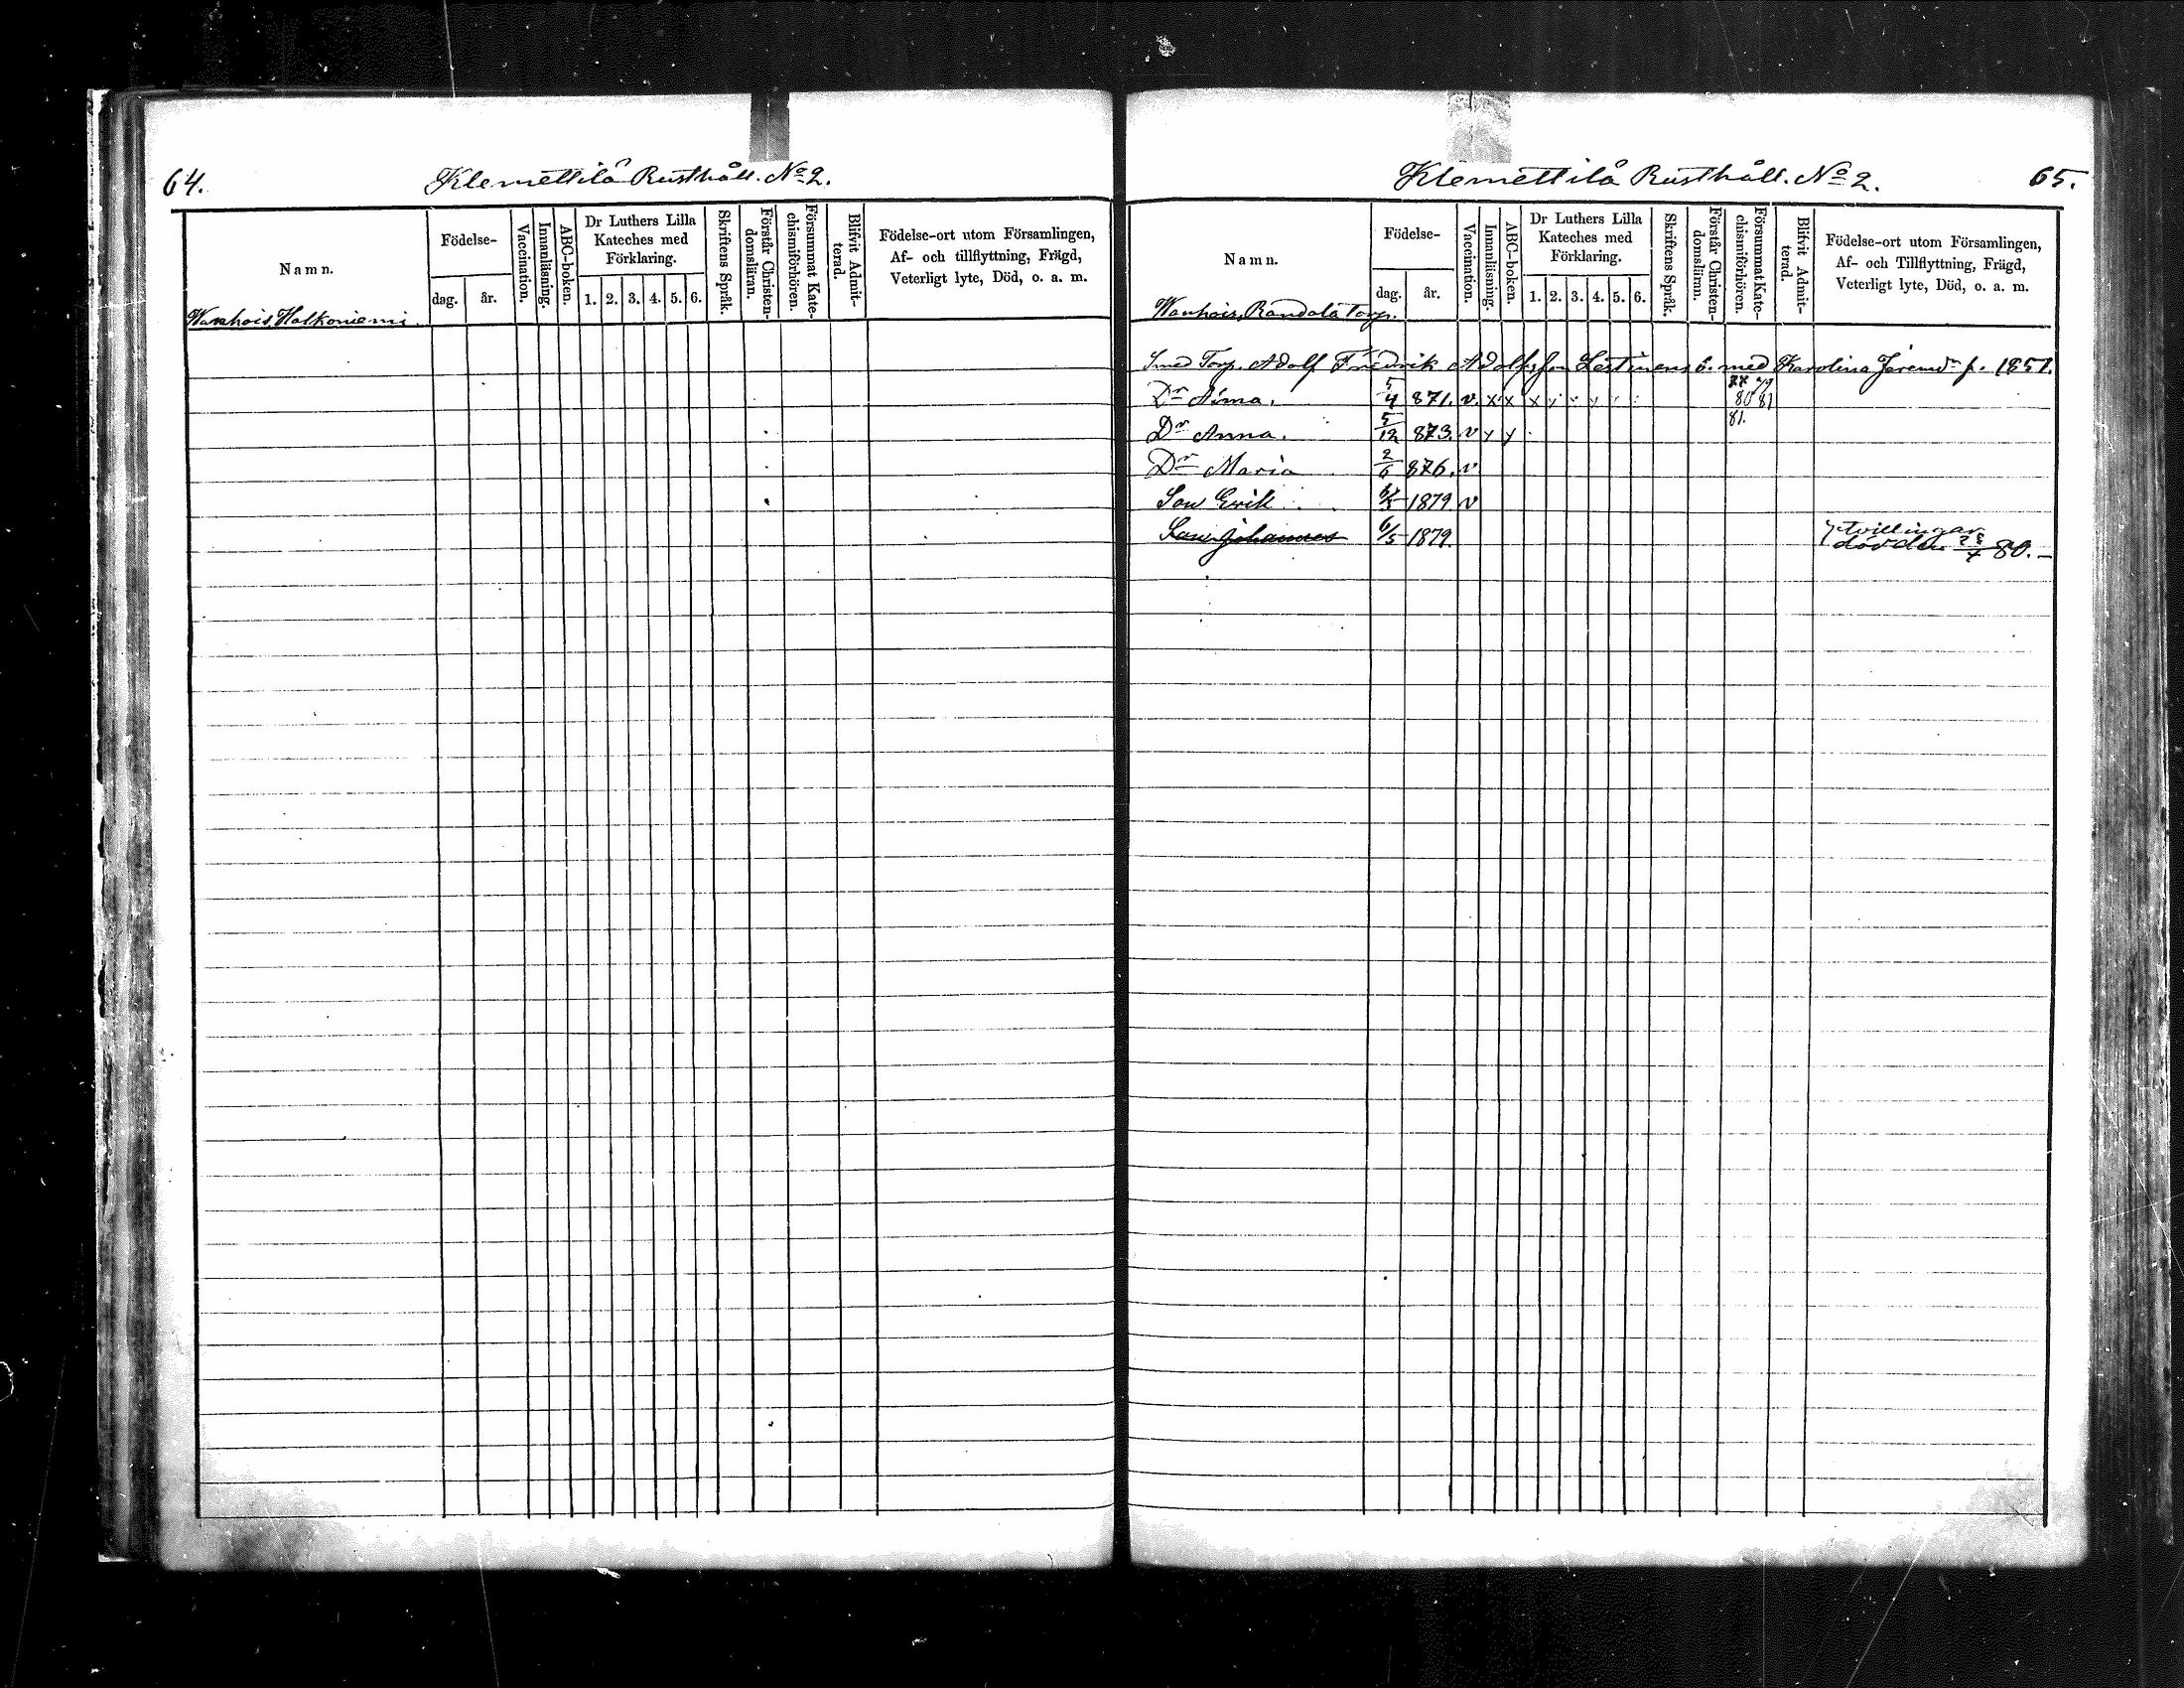 64.
Klemettilä Rusthåll. No 2.
Namn.
Födelse-
dag.
år.
Vaccination.
Innanläsning.
ABC-boken.
Dr Luthers Lilla
Kateches med
Förklaring.
1. 2. 3. 4. 5. 6.
Skriftens Språk.
Förstår Christen-
domsläran.
Försummat Kate-
chismiförhören.
Blifvit Admit-
terad.
Födelse-ort utom Församlingen,
Af- och tillflyttning, Frägd,
Veterligt lyte, Död, o. a. m.
Wanhois, Halkoniemi.
Klemettilä Rusthåll. No 2.
65.
Namn.
Födelse-
dag.
år.
Vaccination.
Innanläsning.
ABC-boken.
Dr Luthers Lilla
Kateches med
Förklaring.
1. 2. 3. 4. 5. 6.
Skriftens Språk.
Förstår Christen-
domsläran.
Försummat Kate-
chismiförhören.
Blifvit Admit-
terad.
Födelse-ort utom Församlingen,
Af- och Tillflyttning, Frägd,
Veterligt lyte, Död, o. a. m.
Wanhois, Randala Torp.
Smed Torp. Adolf Fredrik Adolfsson Lestinens b. med Karolina Järemdr f. 1851.
Dr Aina. 5/4 871. v. x x x 80 81
81.
Dr Anna. 5/12 873. v
Dr Maria 2/6 876. v
Son Erik 6/5 1879 v
Son Johannes 6/5 1879. tvillingar
död den 80.